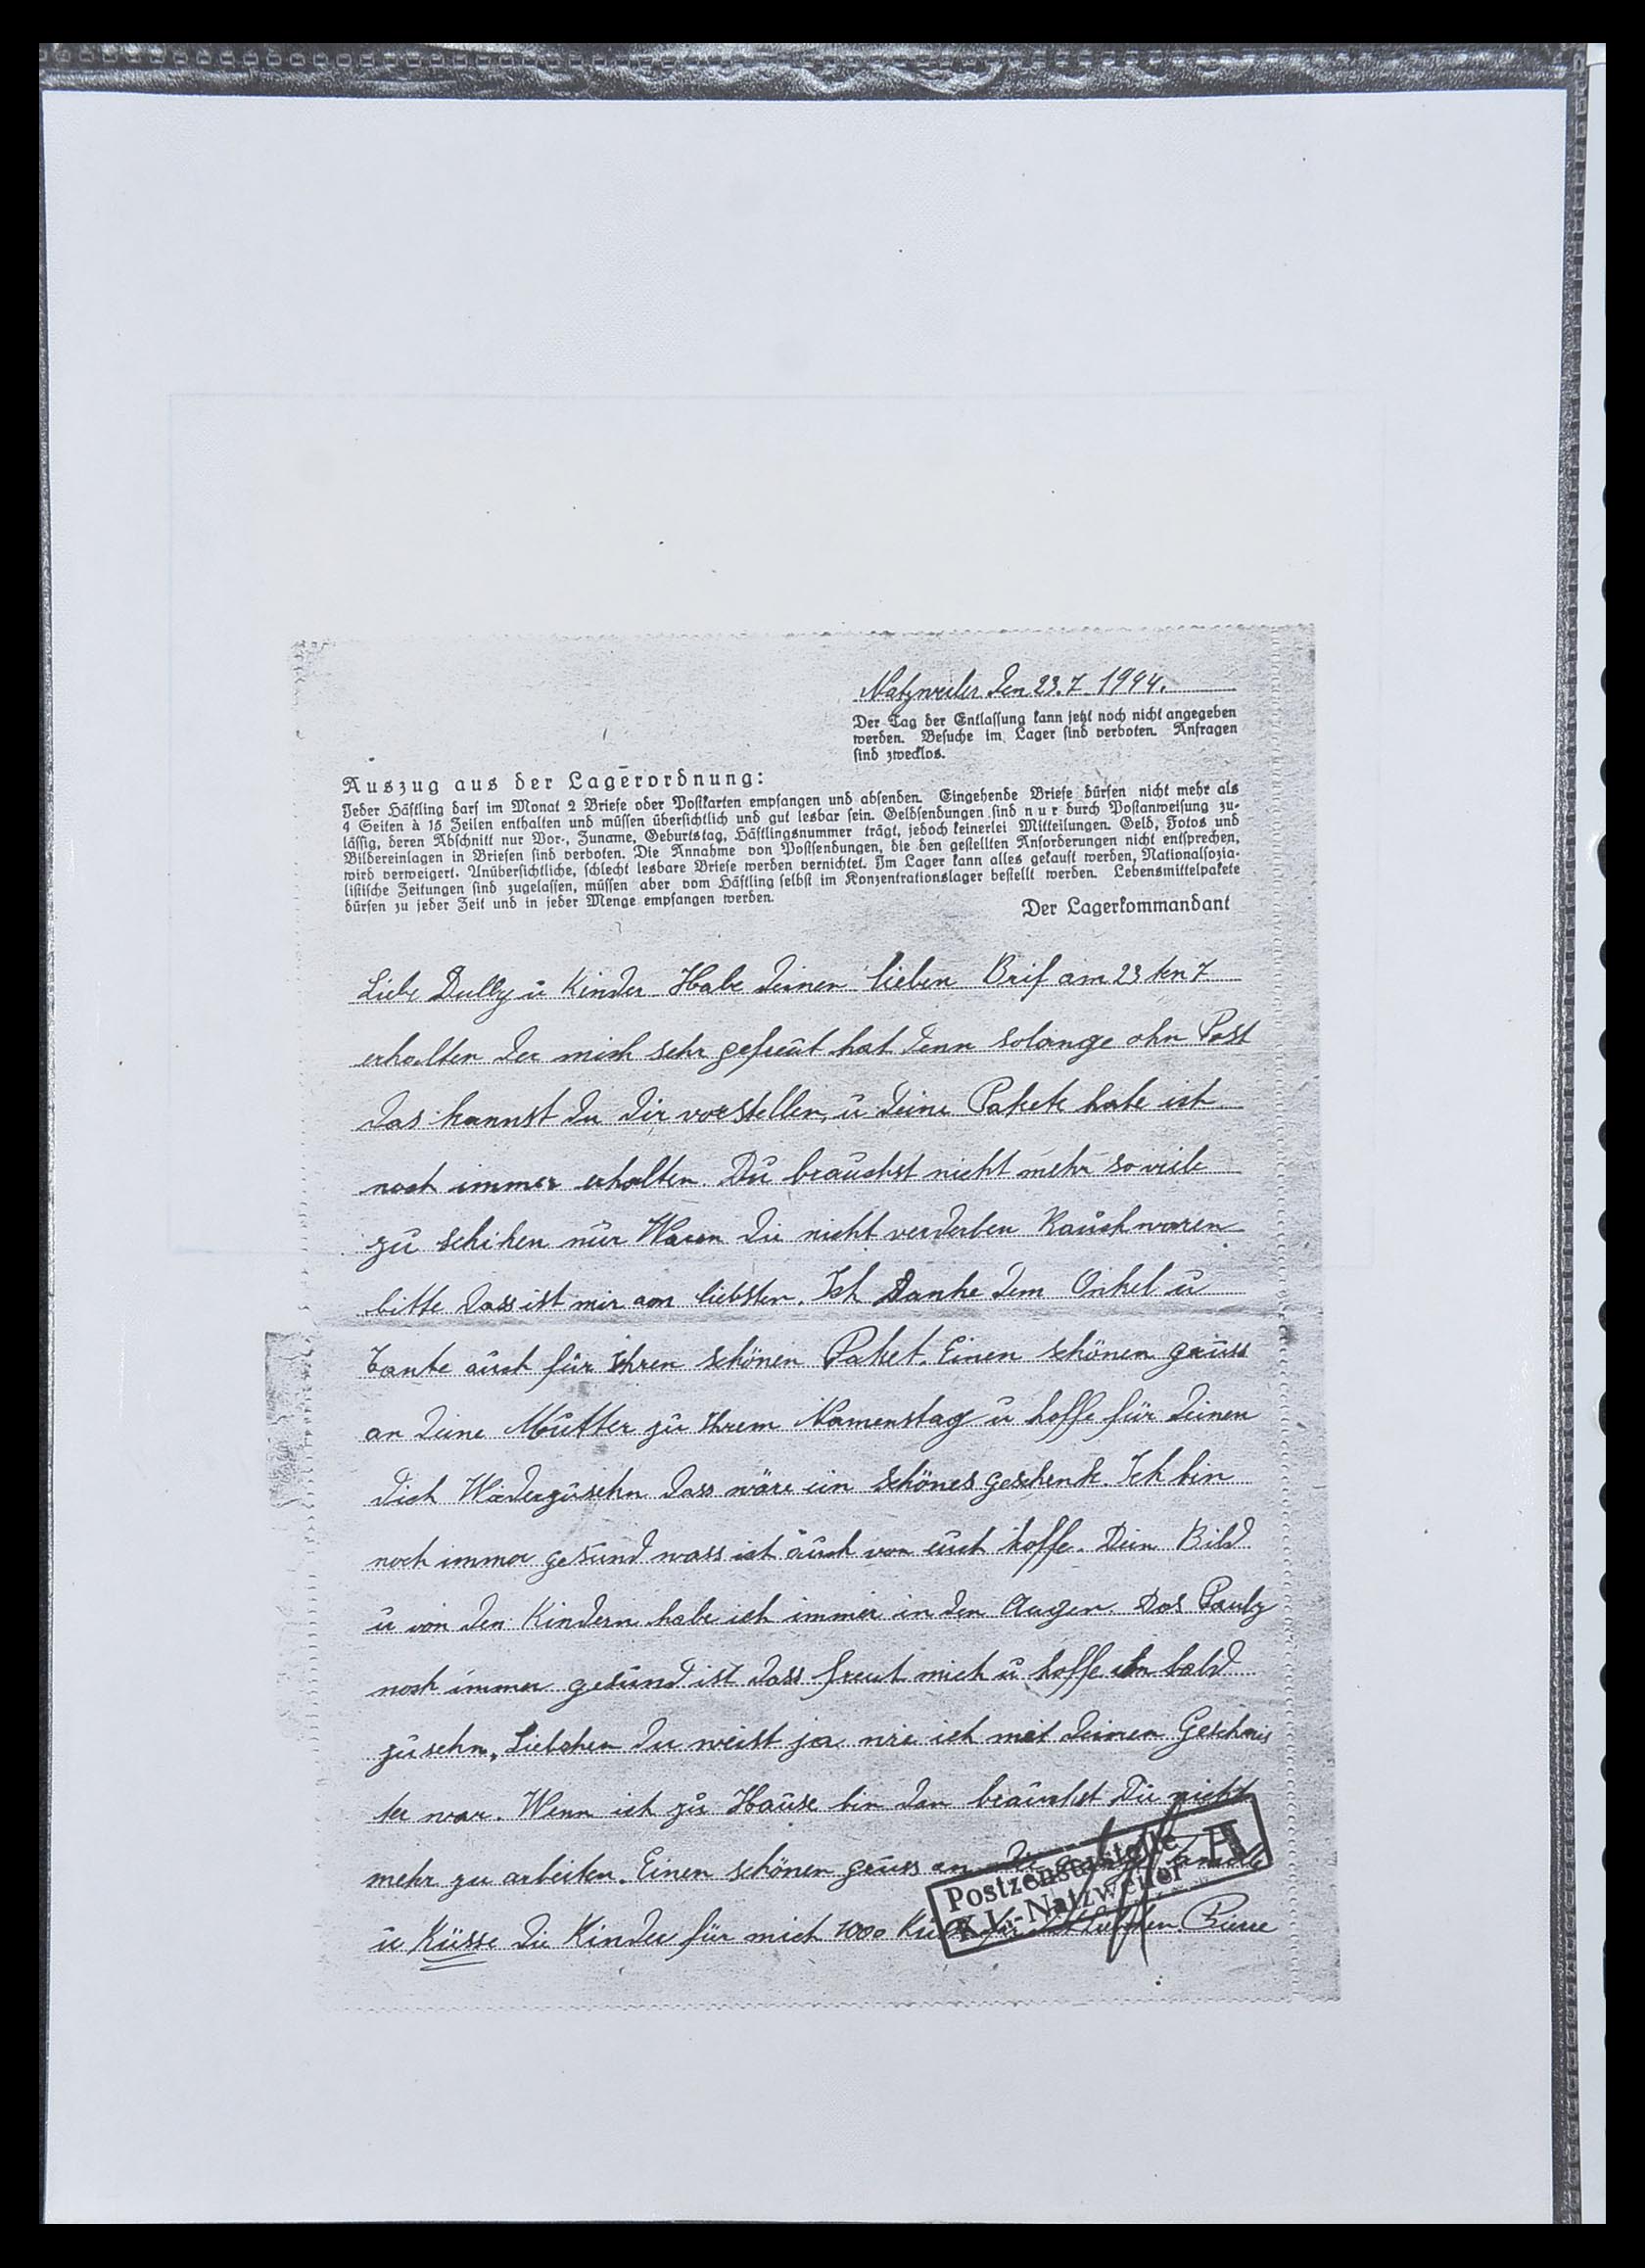 Natzweiler den 23.7 1944.
Der Tag der Entlassung kann jetzt noch nicht angegeben
werden. Besuche im Lager sind verboten. Anfragen
sind zwecklos.
Auszug aus der Lagerordnung:
Jeder Häftling darf im Monat 2 Briefe oder Postkarten empfangen und absenden. Eingehende Briefe dürfen nicht mehr als
4 Seiten à 15 Zeilen enthalten und müssen übersichtlich und gut lesbar sein. Geldsendungen sind nur durch Postanweisung zu-
lässig, deren Abschnitt nur Vor-, Zuname, Geburtstag, Häftlingsnummer trägt, jedoch keinerlei Mitteilungen. Geld, Fotos und
Bildereinlagen in Briefen sind verboten. Die Annahme von Postsendungen, die den gestellten Anforderungen nicht entsprechen,
wird verweigert. Unübersichtliche, schlecht lesbare Briefe werden vernichtet. Im Lager kann alles gekauft werden, Nationalsozia-
listische Zeitungen sind zugelassen, müssen aber vom Häftling selbst im Konzentrationslager bestellt werden. Lebensmittelpakete
dürfen zu jeder Zeit und in jeder Menge empfangen werden.
Der Lagerkommandant
Liebe Dully u Kinder Habe deinen lieben Brif am 23 ten 7
erhalten der mich sehr gefreut hat denn solange ohn Post
das kannst du dir vorstellen, u deine Pakete habe ich
noch immer erhalten. Du brauchst nicht mehr so viele
zu schiken nur Waren die nicht verderben Rauchwaren
bitte dass ist mir am liebsten. Ich Danke dem Onkel u
Tante auch für Ihren schönen Paket. Einen schönen gruss
an deine Mutter zu Ihrem Namenstag u hoffe für deinen
dich Wiederzusehn dass wäre ein schönes geschenk. Ich bin
noch immer gesund wass ich auch von euch hoffe. Dein Bild
u von den Kindern habe ich immer in den Augen. Das Pauly
noch immer gesund ist dass freut mich u hoffe ihn bald
zu sehn. Liebchen du weist ja wie ich mit deinen Geschwis
ter war. Wenn ich zu Hause bin dan brauchst Du nicht
mehr zu arbeiten. Einen schönen gruss an
u Küsse die Kinder für mich 1000
Postzensurstelle
K.L.-Natzweiler A